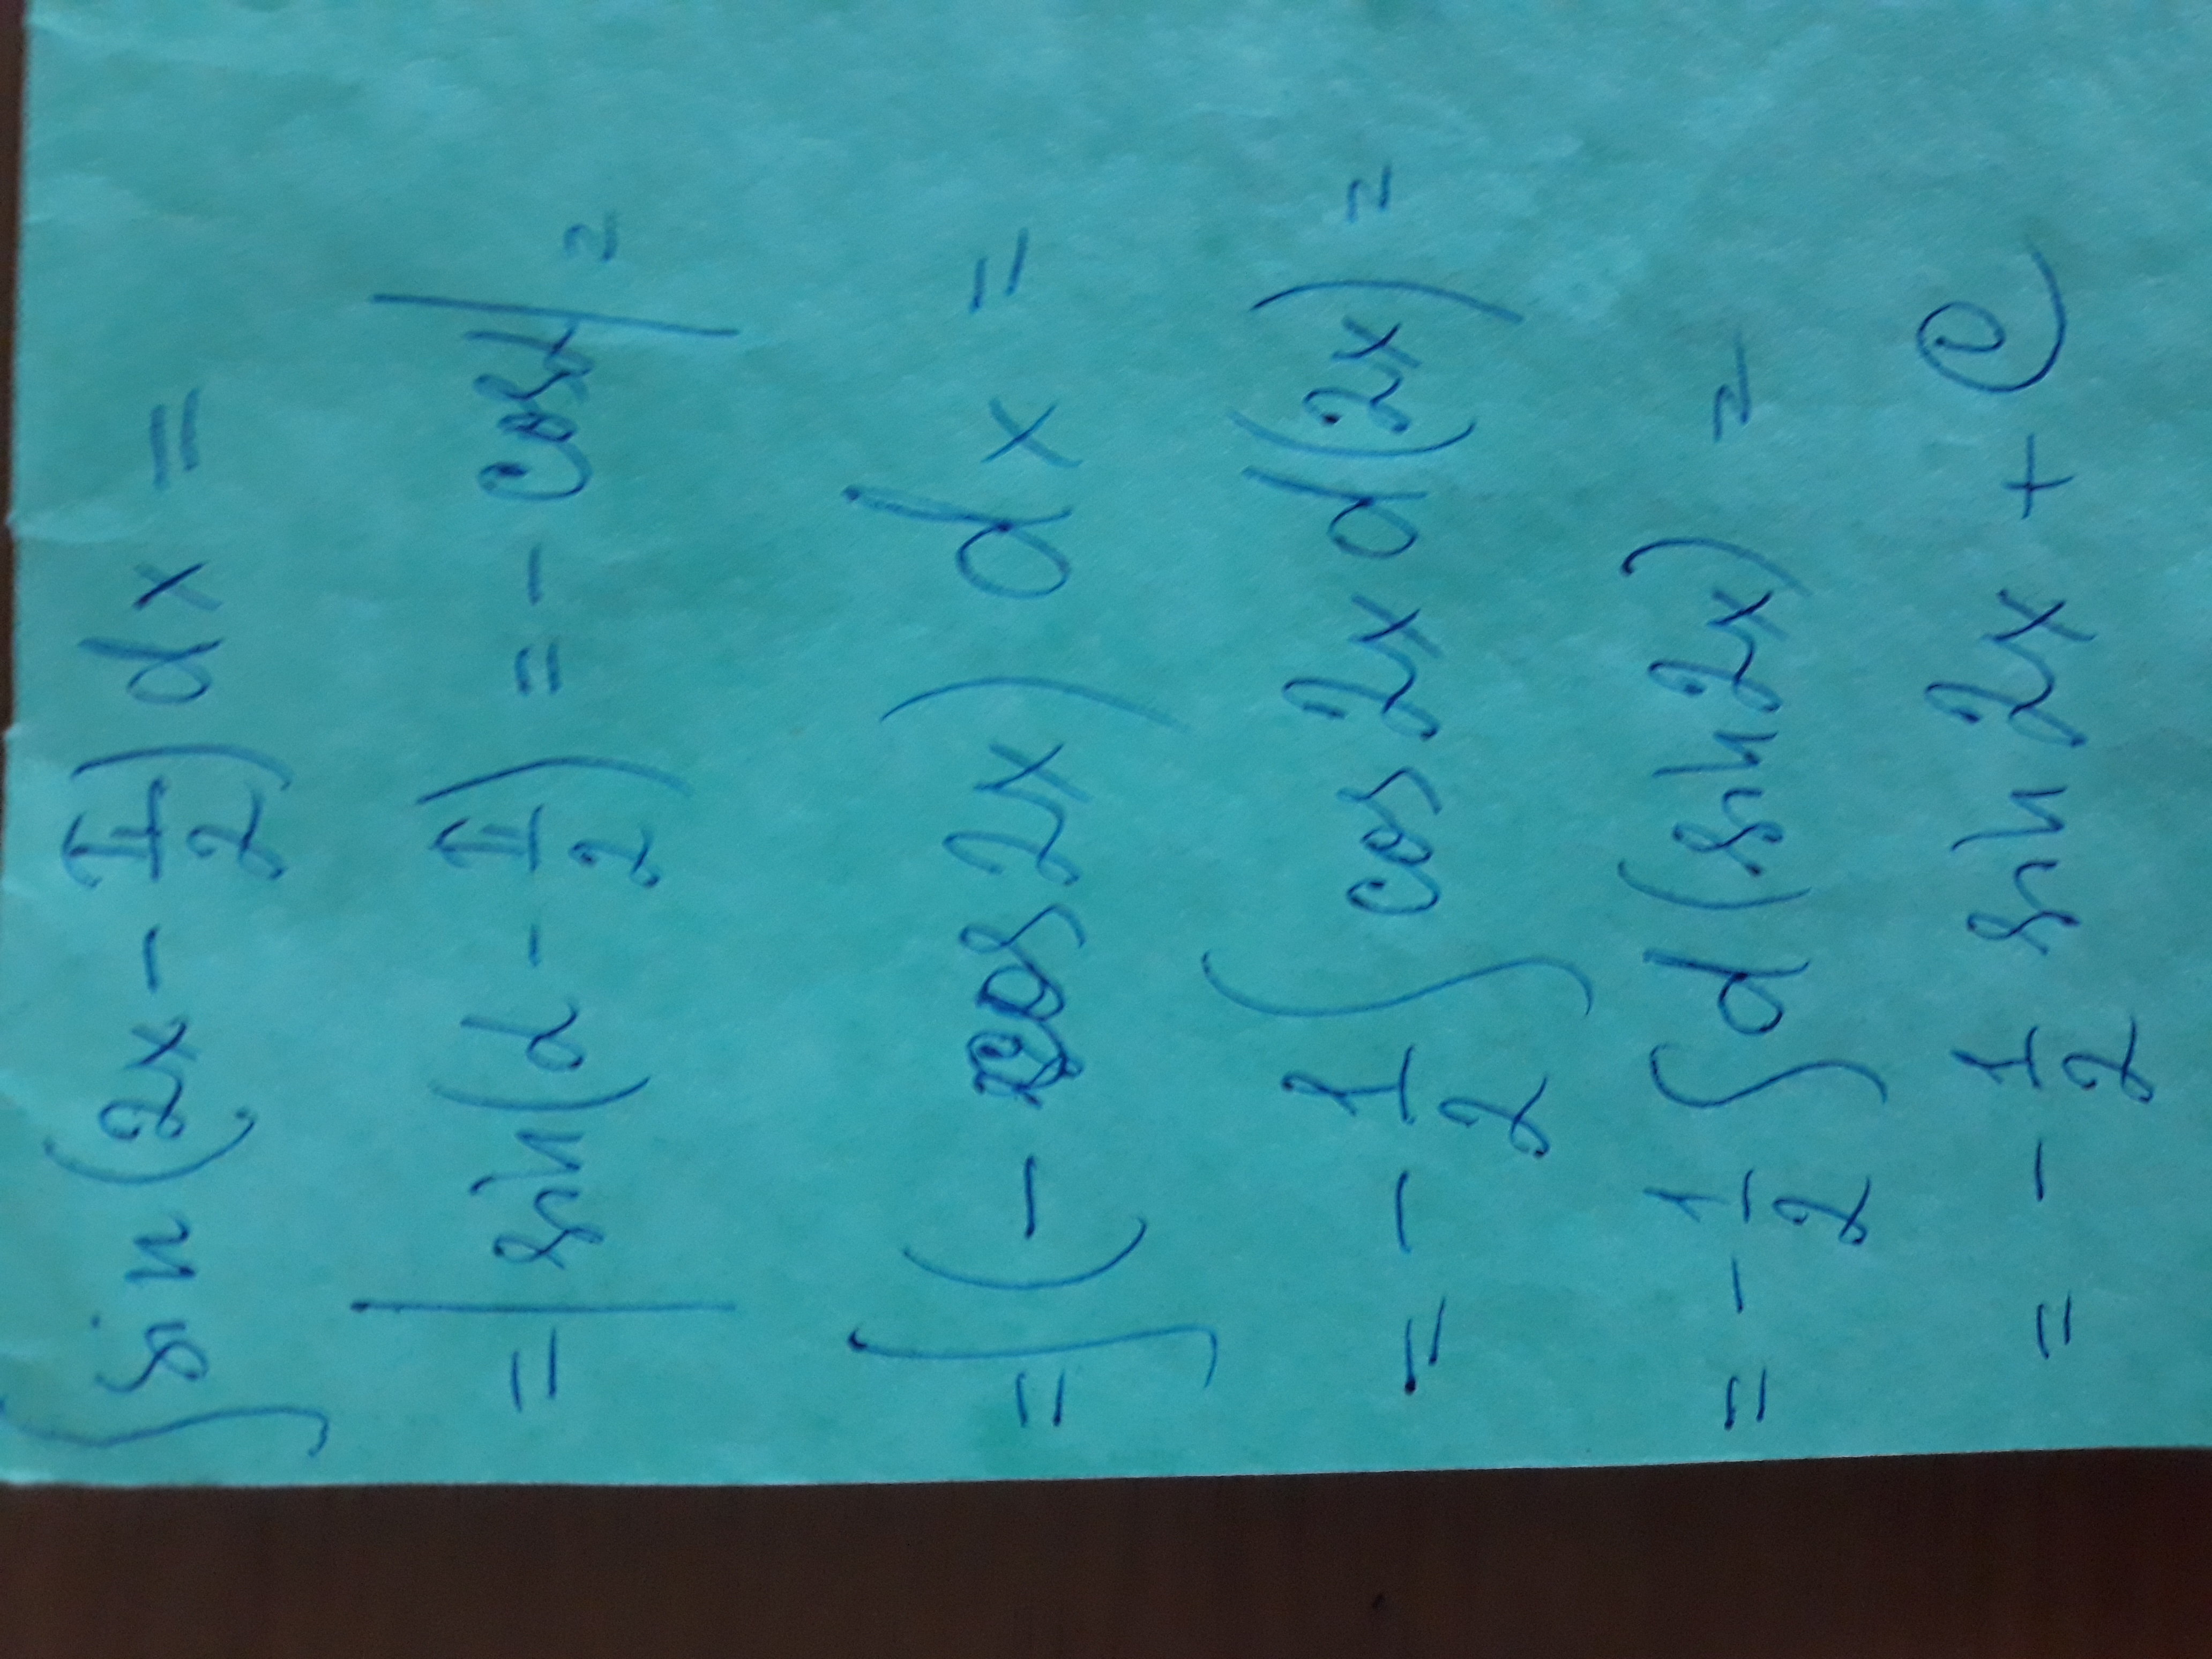 ∫ sin(2x - π/2) dx =
= | sin(α - π/2) = - cos α | =
= ∫ (- cos 2x) dx =
= - 1/2 ∫ cos 2x d(2x) =
= - 1/2 ∫ d(sin 2x) =
= - 1/2 sin 2x + C